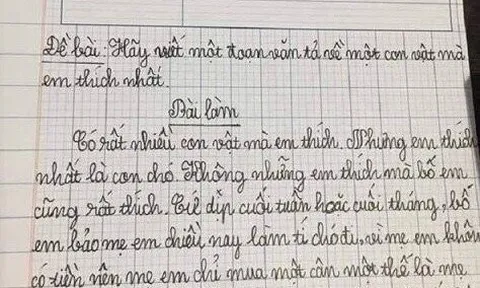 Đề bài: Hãy viết một đoan văn tả về một con vật mà
em thích nhất.
Bài làm
Có rất nhiều con vật mà em thích. Nhưng em thích
nhất là con chó. Không những em thích mà bố em
cũng rất thích. Cứ dịp cuối tuần hoặc cuối tháng, bố
em bảo mẹ em chiều nay làm tí chó đi, vì mẹ em khôn
có tiền nên mẹ em chỉ mua một cân một thế là mẹ